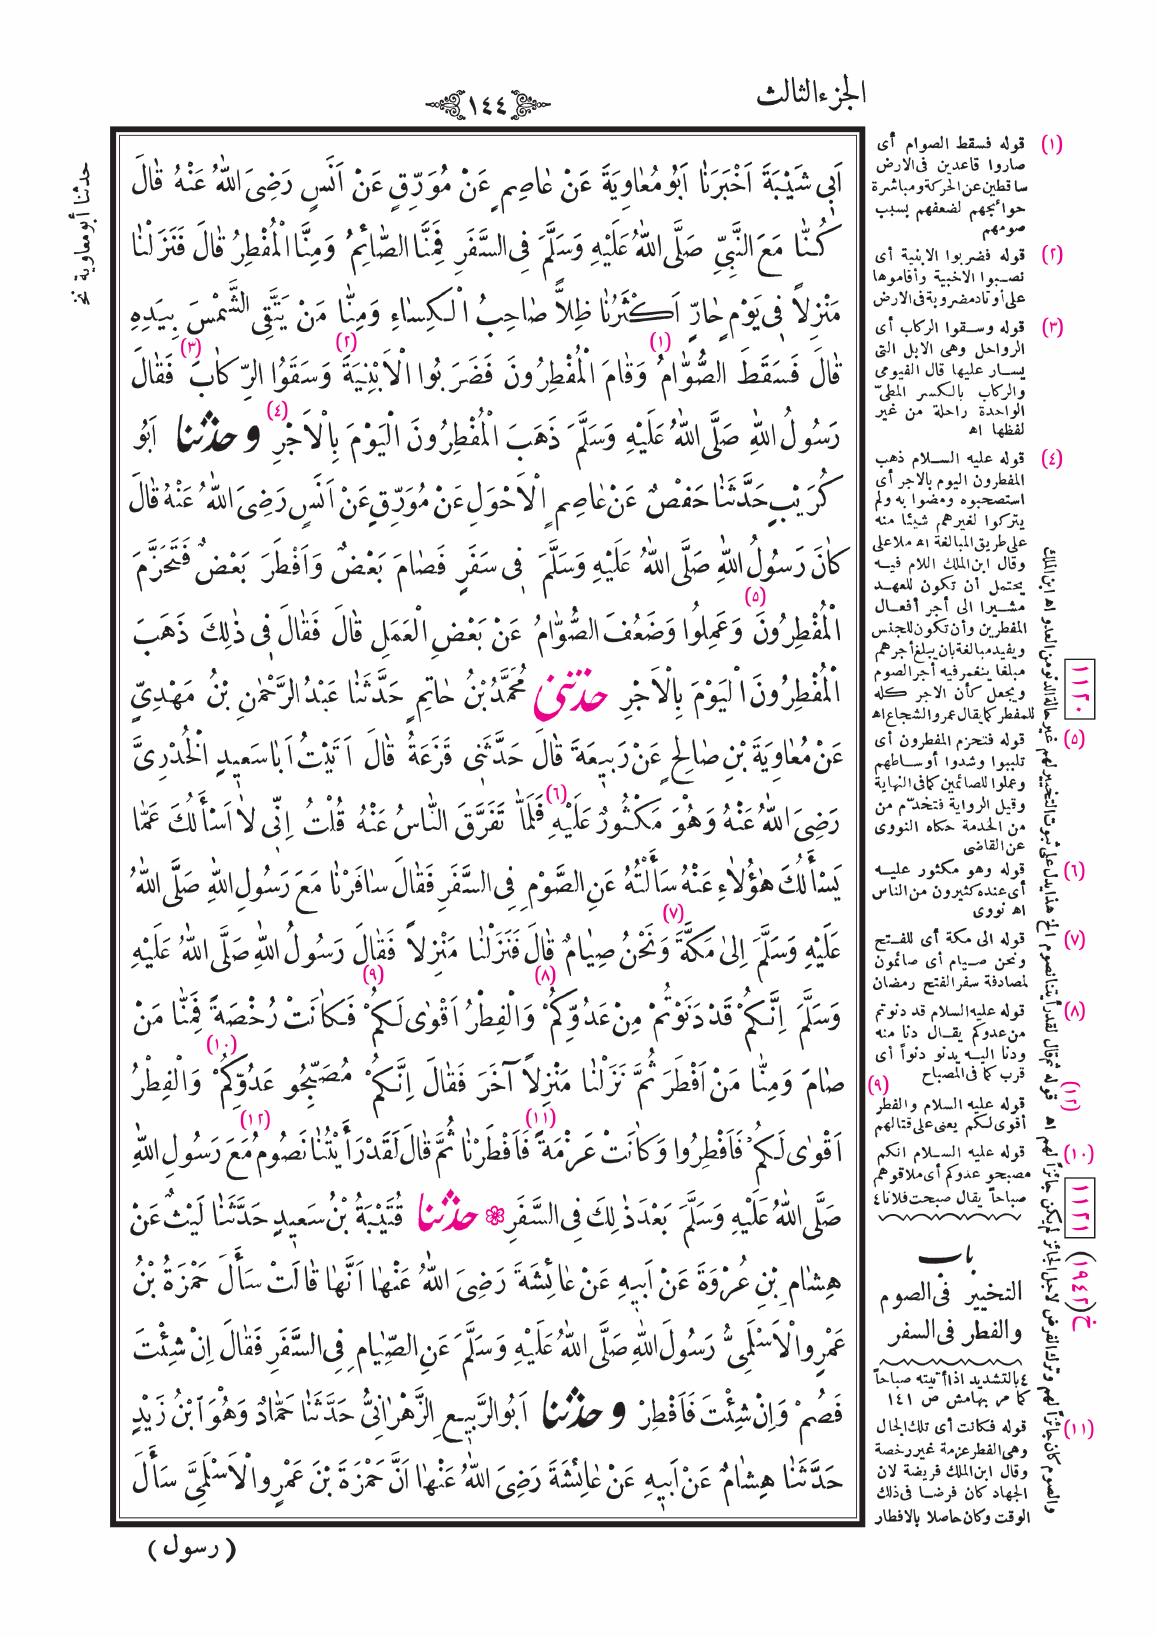 الجزء الثالث
١٤٤
حدثنا أبو معاوية نخ
اَبِي شَيْبَةَ اَخْبَرَنَا اَبُو مُعَاوِيَةَ عَنْ عَاصِمٍ عَنْ مُوَرِّقٍ عَنْ اَنَسٍ رَضِىَ اللّٰهُ عَنْهُ قَالَ
كُنَّا مَعَ النَّبِيِّ صَلَّى اللّٰهُ عَلَيْهِ وَسَلَّمَ فِى السَّفَرِ فَمِنَّا الصَّائِمُ وَمِنَّا الْمُفْطِرُ قَالَ فَنَزَلْنَا
مَنْزِلاً فِي يَوْمٍ حَارٍّ اَكْثَرُنَا ظِلاًّ صَاحِبُ الْكِسَاءِ وَمِنَّا مَنْ يَتَّقِى الشَّمْسَ بِيَدِهِ
قَالَ فَسَقَطَ الصُّوَّامُ (١) وَقَامَ الْمُفْطِرُونَ فَضَرَبُوا الْاَبْنِيَةَ (٢) وَسَقَوُا الرِّكَابَ (٣) فَقَالَ
رَسُولُ اللّٰهِ صَلَّى اللّٰهُ عَلَيْهِ وَسَلَّمَ ذَهَبَ الْمُفْطِرُونَ الْيَوْمَ بِالْاَجْرِ (٤) وحدثنا اَبُو
كُرَيْبٍ حَدَّثَنَا حَفْصٌ عَنْ عَاصِمٍ الْاَحْوَلِ عَنْ مُوَرِّقٍ عَنْ اَنَسٍ رَضِىَ اللّٰهُ عَنْهُ قَالَ
كَانَ رَسُولُ اللّٰهِ صَلَّى اللّٰهُ عَلَيْهِ وَسَلَّمَ فِي سَفَرٍ فَصَامَ بَعْضٌ وَاَفْطَرَ بَعْضٌ فَتَحَزَّمَ
الْمُفْطِرُونَ (٥) وَعَمِلُوا وَضَعُفَ الصُّوَّامُ عَنْ بَعْضِ الْعَمَلِ قَالَ فَقَالَ فِي ذٰلِكَ ذَهَبَ
الْمُفْطِرُونَ الْيَوْمَ بِالْاَجْرِ حدثنى مُحَمَّدُ بْنُ حَاتِمٍ حَدَّثَنَا عَبْدُ الرَّحْمٰنِ بْنُ مَهْدِيٍّ
عَنْ مُعَاوِيَةَ بْنِ صَالِحٍ عَنْ رَبِيعَةَ قَالَ حَدَّثَنِي قَزَعَةُ قَالَ اَتَيْتُ اَبَا سَعِيدٍ الْخُدْرِىَّ
رَضِىَ اللّٰهُ عَنْهُ وَهُوَ مَكْثُورٌ عَلَيْهِ (٦) فَلَمَّا تَفَرَّقَ النَّاسُ عَنْهُ قُلْتُ اِنِّى لَا اَسْأَلُكَ عَمَّا
يَسْأَلُكَ هٰؤُلَاءِ عَنْهُ سَأَلْتُهُ عَنِ الصَّوْمِ فِى السَّفَرِ فَقَالَ سَافَرْنَا مَعَ رَسُولِ اللّٰهِ صَلَّى اللّٰهُ
عَلَيْهِ وَسَلَّمَ اِلىٰ مَكَّةَ (٧) وَنَحْنُ صِيَامٌ قَالَ فَنَزَلْنَا مَنْزِلاً فَقَالَ رَسُولُ اللّٰهِ صَلَّى اللّٰهُ عَلَيْهِ
وَسَلَّمَ اِنَّكُمْ قَدْ دَنَوْتُمْ مِنْ عَدُوِّكُمْ (٨) وَالْفِطْرُ اَقْوٰى لَكُمْ (٩) فَكَانَتْ رُخْصَةً فَمِنَّا مَنْ
صَامَ وَمِنَّا مَنْ اَفْطَرَ ثُمَّ نَزَلْنَا مَنْزِلاً آخَرَ فَقَالَ اِنَّكُمْ مُصَبِّحُو عَدُوِّكُمْ (١٠) وَالْفِطْرُ
اَقْوٰى لَكُمْ فَاَفْطِرُوا وَكَانَتْ عَزْمَةً (١١) فَاَفْطَرْنَا ثُمَّ قَالَ لَقَدْ رَأَيْتُنَا نَصُومُ (١٢) مَعَ رَسُولِ اللّٰهِ
صَلَّى اللّٰهُ عَلَيْهِ وَسَلَّمَ بَعْدَ ذٰلِكَ فِى السَّفَرِ ۞ حدثنا قُتَيْبَةُ بْنُ سَعِيدٍ حَدَّثَنَا لَيْثٌ عَنْ
هِشَامِ بْنِ عُرْوَةَ عَنْ اَبِيهِ عَنْ عَائِشَةَ رَضِىَ اللّٰهُ عَنْهَا اَنَّهَا قَالَتْ سَأَلَ حَمْزَةُ بْنُ
عَمْرٍو الْاَسْلَمِىُّ رَسُولَ اللّٰهِ صَلَّى اللّٰهُ عَلَيْهِ وَسَلَّمَ عَنِ الصِّيَامِ فِى السَّفَرِ فَقَالَ اِنْ شِئْتَ
فَصُمْ وَاِنْ شِئْتَ فَاَفْطِرْ وحدثنا اَبُو الرَّبِيعِ الزَّهْرَانِىُّ حَدَّثَنَا حَمَّادٌ وَهُوَ ابْنُ زَيْدٍ
حَدَّثَنَا هِشَامٌ عَنْ اَبِيهِ عَنْ عَائِشَةَ رَضِىَ اللّٰهُ عَنْهَا اَنَّ حَمْزَةَ بْنَ عَمْرٍو الْاَسْلَمِىَّ سَأَلَ
(رسول)
(١) قوله فسقط الصوام أى
صاروا قاعدين فى الارض
ساقطين عن الحركة ومباشرة
حوائجهم لضعفهم بسبب
صومهم
(٢) قوله فضربوا الابنية أى
نصبوا الاخبية وأقاموها
على أوتاد مضروبة فى الارض
(٣) قوله وسقوا الركاب أى
الرواحل وهى الابل التى
يسار عليها قال الفيومى
والركاب بالكسر المطىّ
الواحدة راحلة من غير
لفظها اه
(٤) قوله عليه السلام ذهب
المفطرون اليوم بالاجر أى
استصحبوه ومضوا به ولم
يتركوا لغيرهم شيئا منه
على طريق المبالغة اه ملا على
وقال ابن الملك اللام فيه
يحتمل أن تكون للعهد
مشيرا الى أجر أفعال
المفطرين وأن تكون للجنس
ويفيد مبالغة بان يبلغ أجرهم
مبلغا ينغمر فيه أجر الصوم
ويجعل كأن الاجر كله
للمفطر كما يقال عمرو الشجاع اه
(٥) قوله فتحزم المفطرون أى
تلببوا وشدوا أوساطهم
وعملوا للصائمين كما فى النهاية
وقيل الرواية فتخدّم من
من الخدمة حكاه النووى
عن القاضى
(٦) قوله وهو مكثور عليه
أى عنده كثيرون من الناس
اه نووى
(٧) قوله الى مكة أى للفتح
ونحن صيام أى صائمون
لمصادفة سفر الفتح رمضان
(٨) قوله عليه السلام قد دنوتم
من عدوكم يقال دنا منه
ودنا اليه يدنو دنواً أى
قرب كما فى المصباح
(٩) قوله عليه السلام والفطر
أقوى لكم يعنى على قتالهم
(١٠) قوله عليه السلام انكم
مصبحو عدوكم أى ملاقوهم
صباحاً يقال صبحت فلانا ٤
باب
التخيير فى الصوم
والفطر فى السفر
٤ بالتشديد اذا أتيته صباحاً
كما مر بهامش ص ١٤١
(١١) قوله فكانت أى تلك الحال
وهى الفطر عزمة غير رخصة
وقال ابن الملك فريضة لان
الجهاد كان فرضا فى ذلك
الوقت وكان حاصلا بالافطار
(١٢) قوله ثم قال لقد رأيتنا نصوم الخ هذا يدل على ثبوت التخيير لهم غير حالة الدنو من العدو اه ابن الملك
والصوم كان جائزاً لهم وترك الفرض لاجل الجائز لم يكن جائزاً لهم اه
١١٢٠
١١٢١
خ (١٩٤٢)